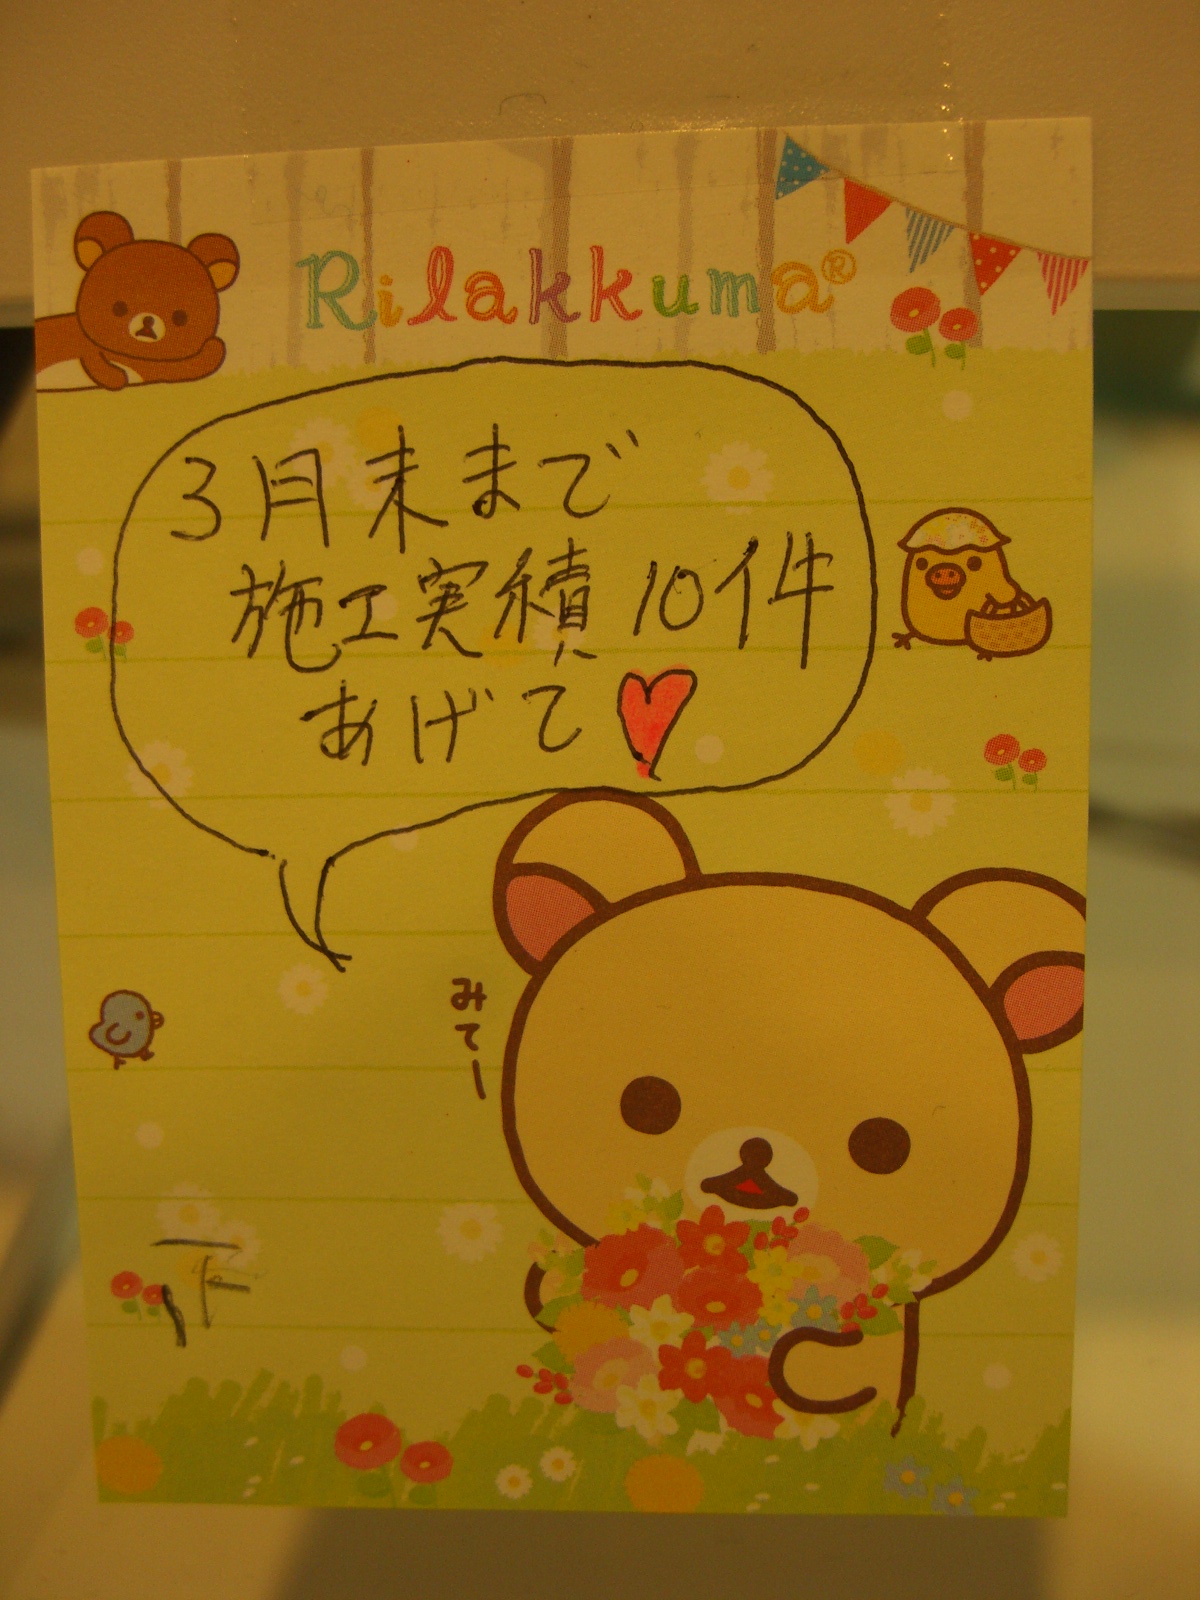 Rilakkuma®
3月末まで
施工実績10件
あげて
みてー
正